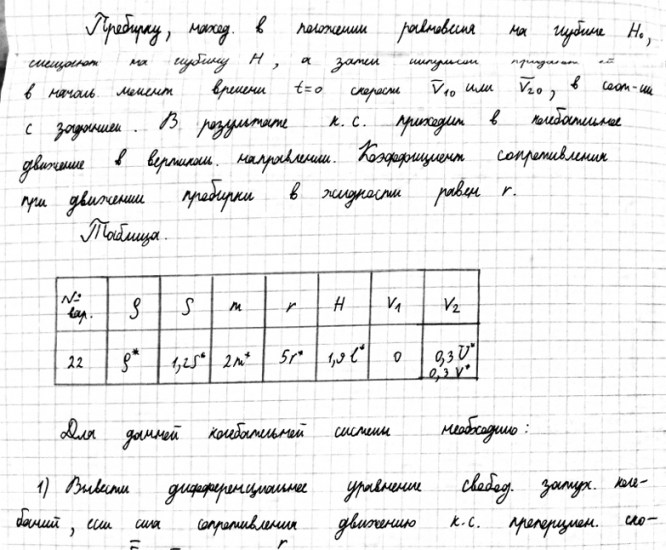 Пробирку, наход. в положении равновесия на глубине H₀,
смещают на глубину H, а затем импульсом придают ей
в началь момент времени t=0 скорости V̄₁₀ или V̄₂₀, в соот-ии
с заданием. В результате к.с. приходит в колебательное
движение в вертикал. направлении. Коэффициент сопротивления
при движении пробирки в жидкости равен r.
Таблица.
№ вар. ρ S m r H V₁ V₂
22 ρ* 1,2S* 2m* 5r* 1,9l* 0 0,3V*
0,3V*
Для данной колебательной системы необходимо:
1) Вывести дифференциальное уравнение свобод. затух. коле-
баний, если сила сопротивления движению к.с. пропорцион. ско-
r